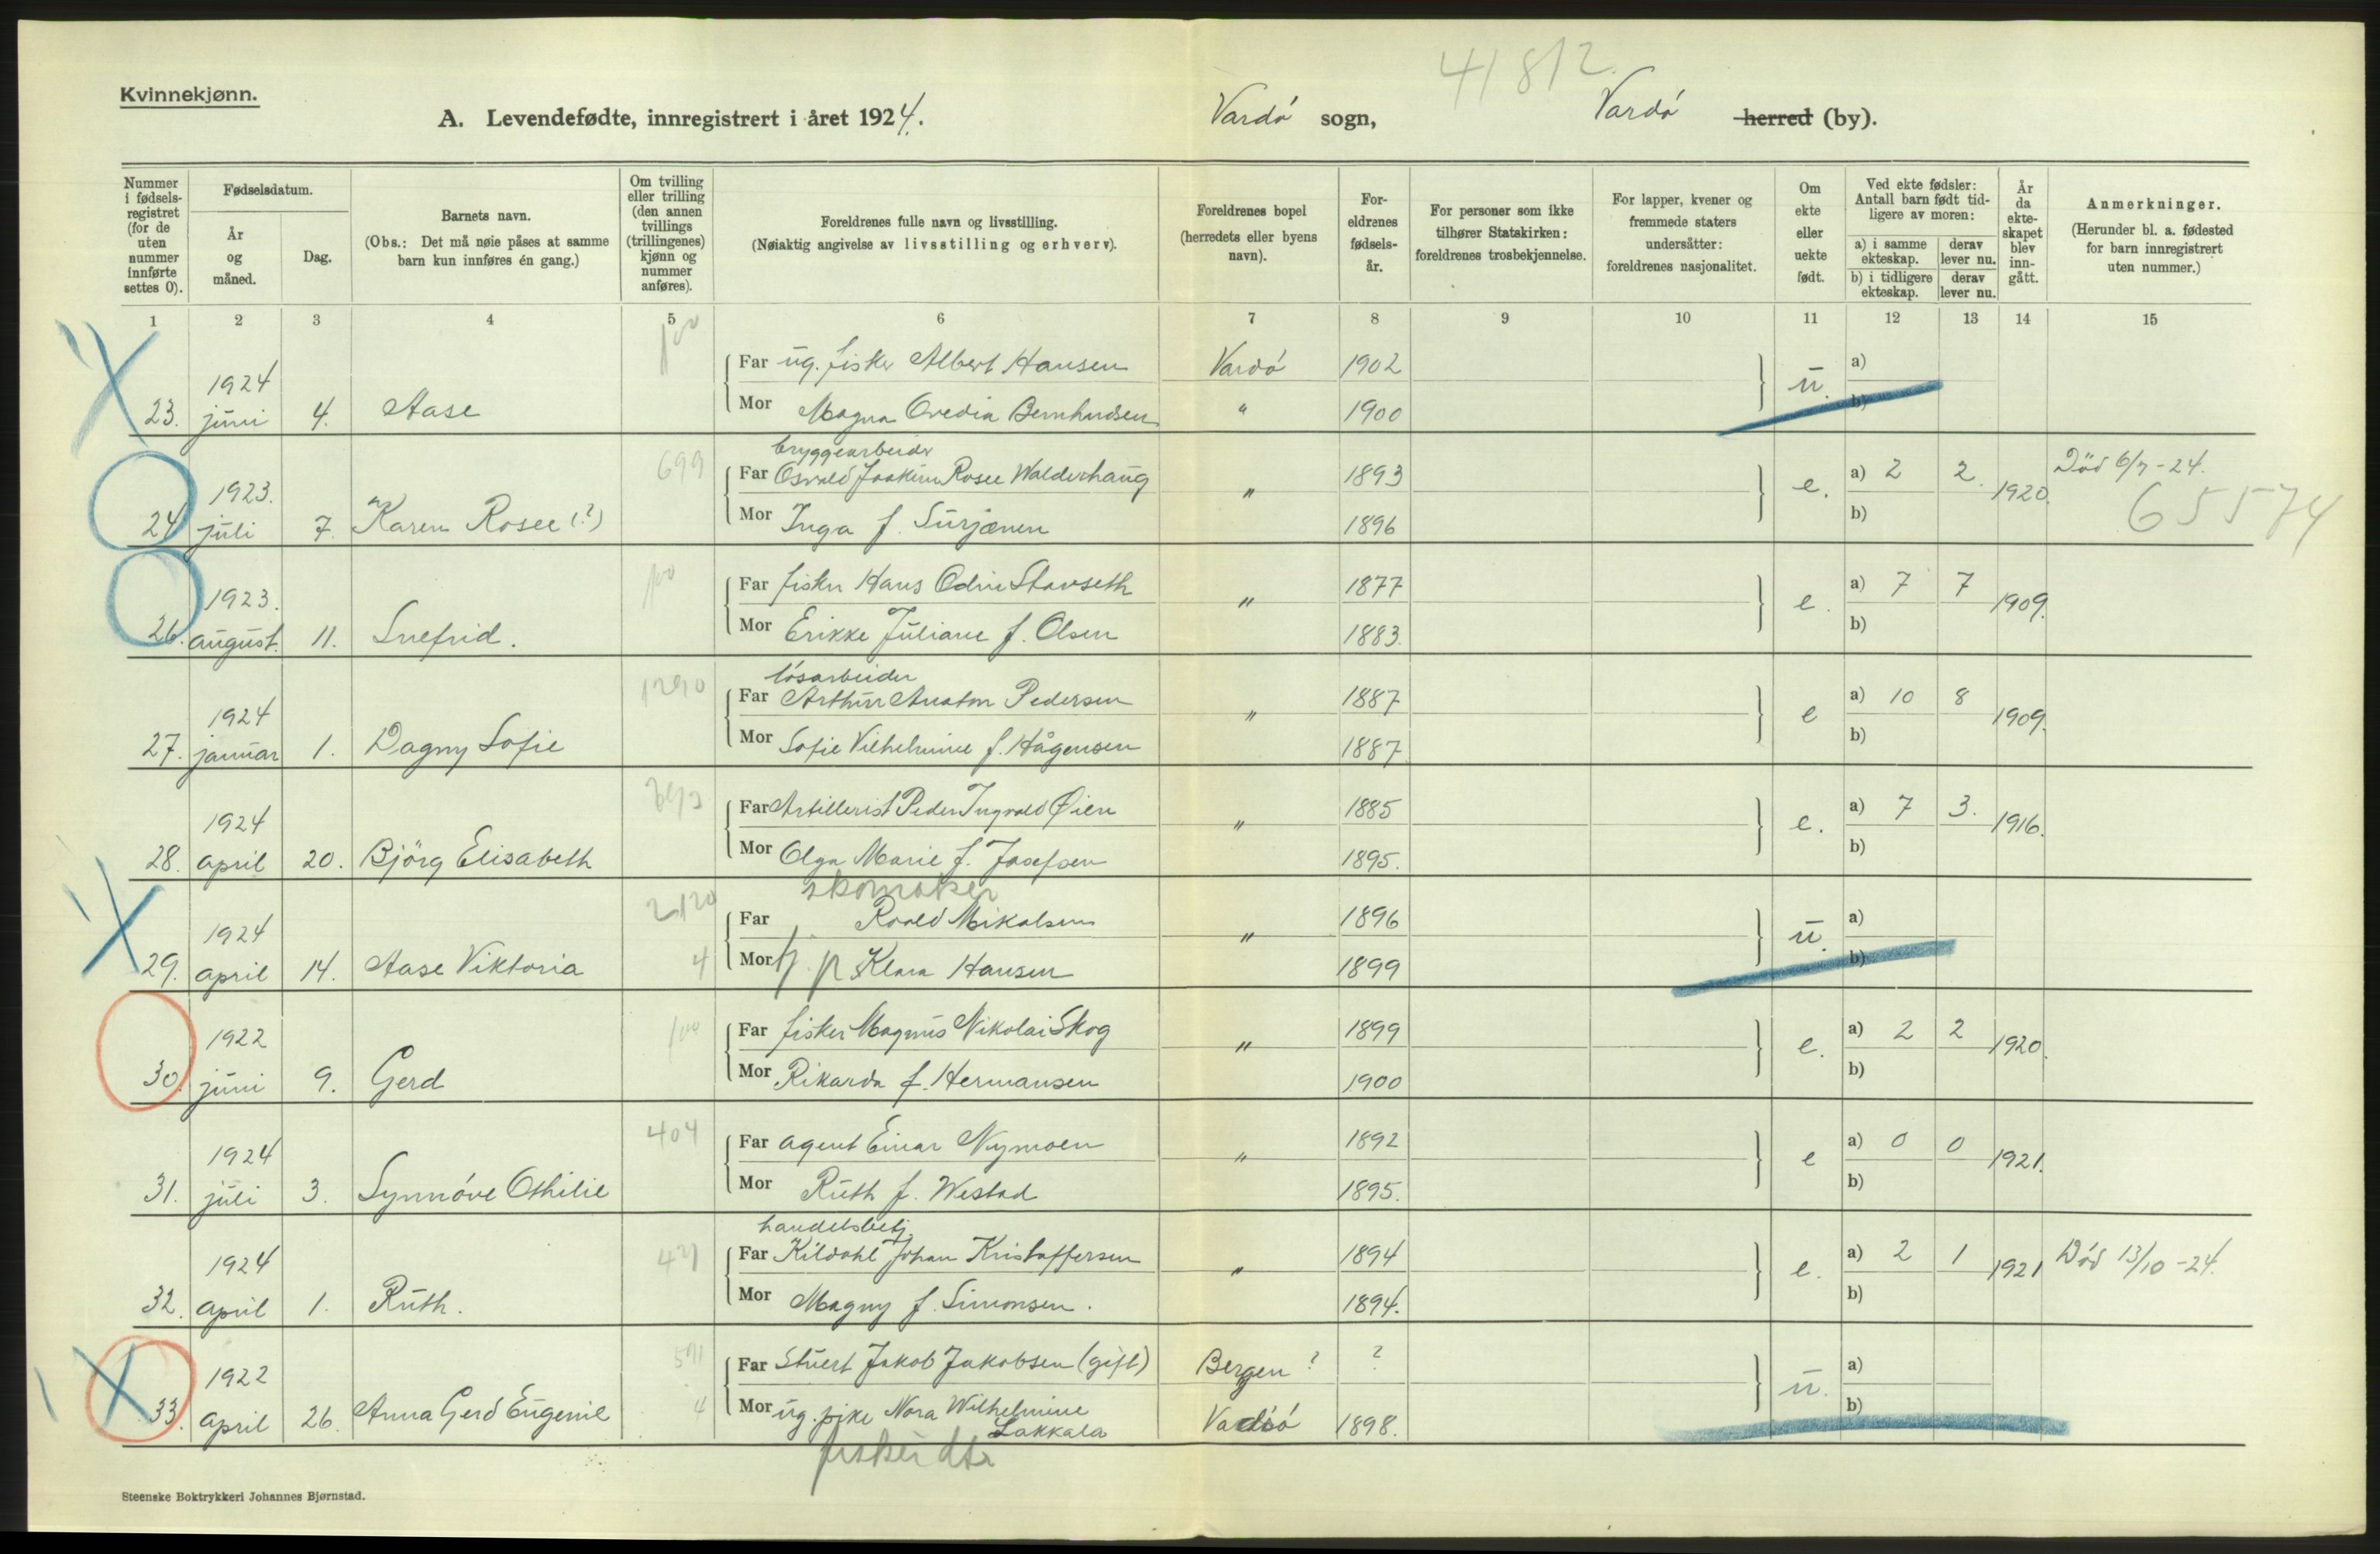 41812.
Kvinnekjønn.
A. Levendefødte, innregistrert i året 1924. Vardö sogn, Vardö herred (by).
Nummer i fødsels-registret (for de uten nummer innførte settes 0).
Fødselsdatum.
År og måned.
Dag.
Barnets navn.
(Obs.: Det må nøie påses at samme barn kun innføres én gang.)
Om tvilling eller trilling (den annen tvillings (trillingenes) kjønn og nummer anføres).
Foreldrenes fulle navn og livsstilling.
(Nøiaktig angivelse av livsstilling og erhverv).
Foreldrenes bopel (herredets eller byens navn).
For-eldrenes fødsels-år.
For personer som ikke tilhører Statskirken: foreldrenes trosbekjennelse.
For lapper, kvener og fremmede staters undersåtter: foreldrenes nasjonalitet.
Om ekte eller uekte født.
Ved ekte fødsler: Antall barn født tid-ligere av moren:
a) i samme ekteskap. derav lever nu.
b) i tidligere ekteskap. derav lever nu.
År da ekte-skapet blev inn-gått.
Anmerkninger.
(Herunder bl. a. fødested for barn innregistrert uten nummer.)
1 2 3 4 5 6 7 8 9 10 11 12 13 14 15
100
Far ug. fisker Albert Hansen Vardö 1902 a)
23. 1924 juni 4. Aase ü.
Mor Magna Ovedia Bernhudsen " 1900 b)
bryggearbeider
699
Far Osvald Joakim Rosee Walderhaug 1893 a) 2 2. Död 6/7-24.
24 1923. juli 7. Karen Rosee (?) " e. 1920.
Mor Inga f. Surjænen 1896 b) 65574
100
Far fisker Hans Odin Stavseth 1877 a) 7 7
26. 1923. august. 11. Snefrid. " e. 1909.
Mor Erikke Juliane f. Olsen 1883. b)
lösarbeider
1290
Far Arthur Anaton Pedersen 1887 a) 10 8
27. 1924 januar 1. Dagny Sofie " e 1909.
Mor Sofie Vilhelmine f. Hågensen 1887 b)
Far Artillerist Peder Ingvald Øien 1885 a) 7 3.
28. 1924 april 20. Björg Elisabeth " e. 1916.
Mor Olga Marie f. Josefsen 1895. b)
skomaker
2120
Far Roald Mikalsen 1896 a)
29. 1924 april 14. Aase Viktoria 4 " ü.
Mor tj. p Klara Hansen 1899 b)
100
Far fisker Magnus Nikolai Skog 1899 a) 2 2
30. 1922 juni 9. Gerd " e. 1920.
Mor Rikarda f. Hermansen 1900 b)
404
Far agent Einar Nymoen 1892 a) 0 0
31. 1924 juli 3. Synnöve Othilie " e 1921.
Mor Ruth f. Westad 1895. b)
handelsbetj.
Far Kildahl Johan Kristoffersen 1894 a) 2 1 Död 13/10-24.
32. 1924 april 1. Ruth. " e. 1921
Mor Magny f. Simonsen. 1894. b)
591
Far Stuert Jakob Jakobsen (gift) Bergen ? ? a)
33. 1922 april 26. Anna Gerd Eugenie 4 ü.
Mor ug. pike Nora Wilhelmine Lakkala Vardö 1898. b)
fisker dtr
Steenske Boktrykkeri Johannes Bjørnstad.